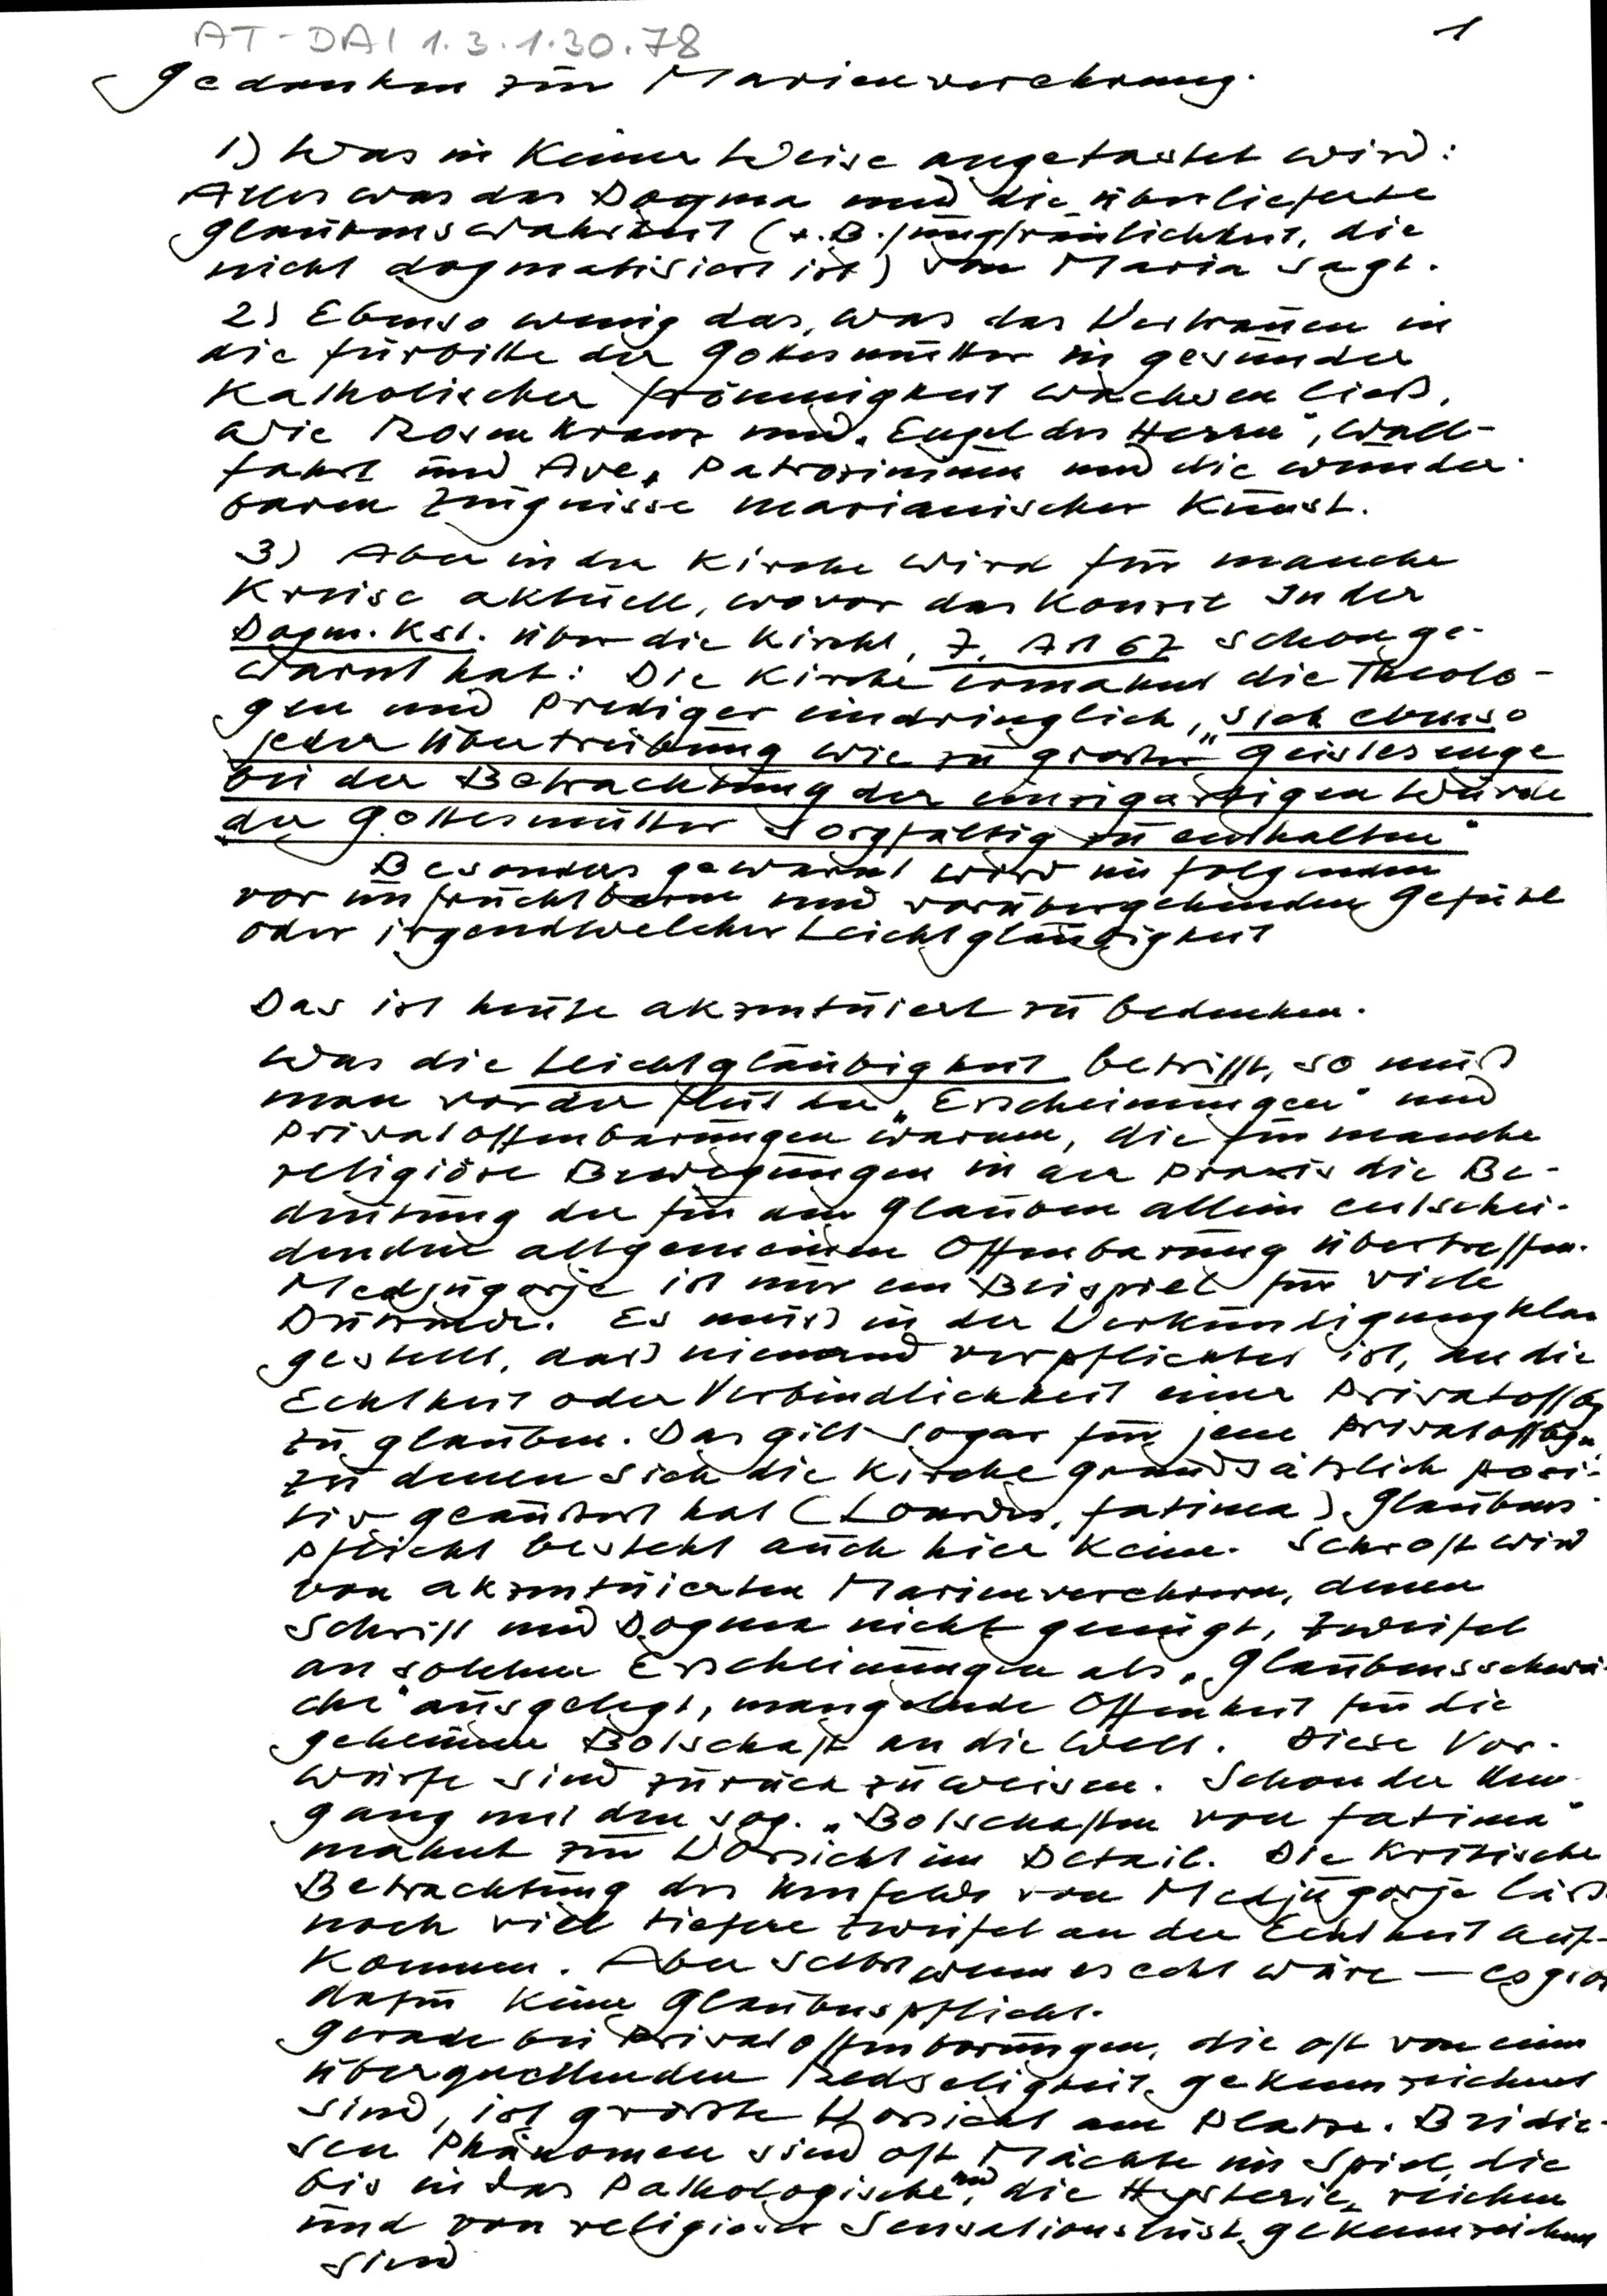 AT-DAI 1.3.1.30.78
1
Gedanken zur Marienverehrung.
1) Was in keiner Weise angetastet wird:
Alles was das Dogma und die überlieferte
Glaubenswahrheit (z.B. Jungfräulichkeit, die
nicht dogmatisiert ist) von Maria sagt.
2) Ebenso wenig das, was das Vertrauen in
die Fürbitte der Gottesmutter in gesunder
Katholischer Frömmigkeit wachsen ließ,
wie Rosenkranz und „Engel des Herrn", Wall-
fahrt und Ave, Patrozinien und die wunder-
baren Zeugnisse marianischer Kunst.
3) Aber in der Kirche wird für manche
Kreise aktuell, wovor das Konzil In der
Dogm. Kst. über die Kirche, 7, Art 67 schon ge-
warnt hat: Die Kirche ermahnt die Theolo-
gen und Prediger eindringlich, „sich ebenso
jeder Übertreibung wie zu großer Geistesenge
bei der Betrachtung der einzigartigen Würde
der Gottesmutter sorgfältig zu enthalten"
Besonders gewarnt wird im folgenden
vor unfruchtbarem und vorübergehenden Gefühl
oder irgendwelcher Leichtgläubigkeit
Das ist heute akzentuiert zu bedenken.
Was die Leichtgläubigkeit betrifft, so muß
man vor der Flut der „Erscheinungen" und
Privatoffenbarungen warnen, die für manche
religiöse Bewegungen in der Praxis die Be-
deutung der für den Glauben allein entschei-
denden allgemeinen Offenbarung übertreffen.
Medjugorje ist nur ein Beispiel für viele
Dutzende. Es muß in der Verkündigung klar
gestellt, daß niemand verpflichtet ist, an die
Echtheit oder Verbindlichkeit einer Privatoffbg
zu glauben. Das gilt sogar für jene Privatoffbgn
zu denen sich die Kirche grundsätzlich posi-
tiv geäußert hat (Lourdes, Fatima). Glaubens-
pflicht besteht auch hier keine. Sehr oft wird
von akzentuierten Marienverehrern, denen
Schrift und Dogma nicht genügt, Zweifel
an solchen Erscheinungen als „Glaubensschwä-
che" ausgelegt, mangelnde Offenheit für die
geheime Botschaft an die Welt. Diese Vor-
würfe sind zurückzuweisen. Schon der Um-
gang mit den sog. „Botschaften von Fatima"
mahnt zur Vorsicht im Detail. Die kritische
Betrachtung des Umfelds von Medjugorje läßt
noch viel tiefere Zweifel an der Echtheit auf-
kommen. Aber selbst wenn es echt wäre — es gibt
dafür keine Glaubenspflicht.
Gerade bei Privatoffenbarungen, die oft von einer
überquellenden Redseligkeit gekennzeichnet
sind, ist größte Vorsicht am Platze. Bei die-
sen Phänomen sind oft Mächte im Spiel, die
bis in das Pathologische und die Hysterie, reichen
und von religiöser Sensationslust gekennzeichnet
sind